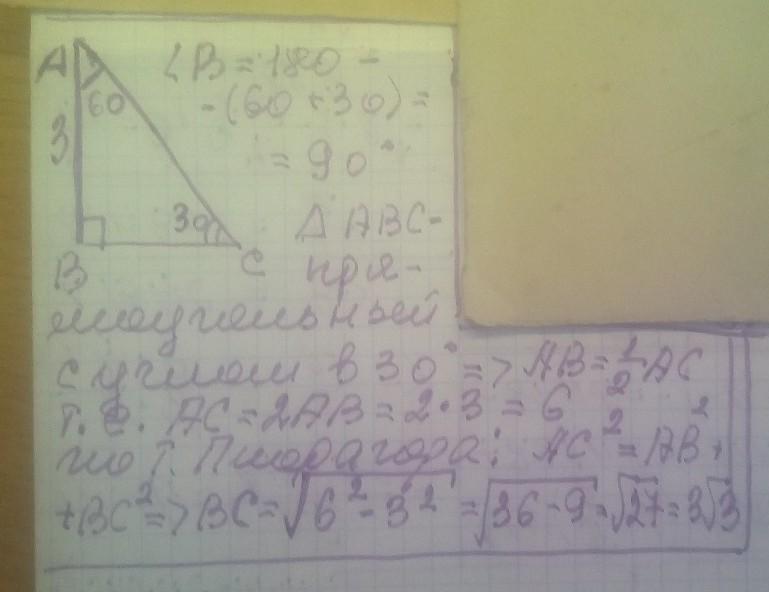 A
60
3
30
B
C
∠B = 180 -
-(60 + 30) =
= 90°
Δ ABC -
пря-
моугольный
с углом в 30° => AB = 1/2 AC
т.е. AC = 2AB = 2·3 = 6
по т. Пифагора: AC² = AB² +
+BC² => BC = √6² - 3² = √36 - 9 = √27 = 3√3